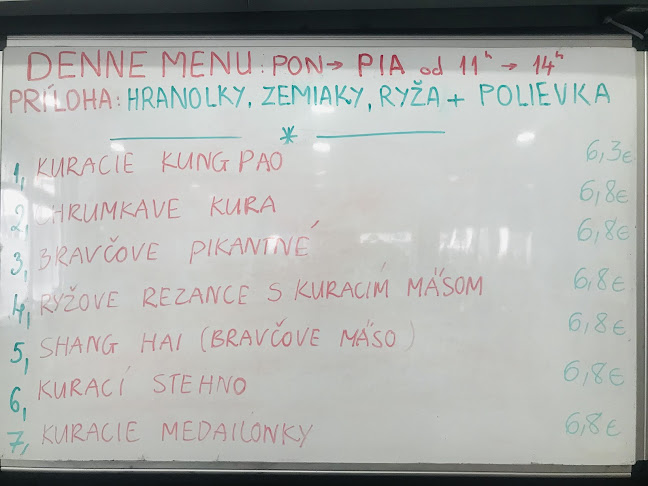 DENNE MENU: PON→ PIA od 11ʰ → 14ʰ
PRÍLOHA: HRANOLKY, ZEMIAKY, RYŽA + POLIEVKA
*
1, KURACIE KUNG PAO 6,3€
2, CHRUMKAVE KURA 6,8€
3, BRAVČOVE PIKANTNÉ 6,8€
4, RYŽOVE REZANCE S KURACÍM MÄSOM 6,8€
5, SHANG HAI (BRAVČOVE MÄSO) 6,8€
6, KURACÍ STEHNO 6,8€
7, KURACIE MEDAILÓNKY 6,8€